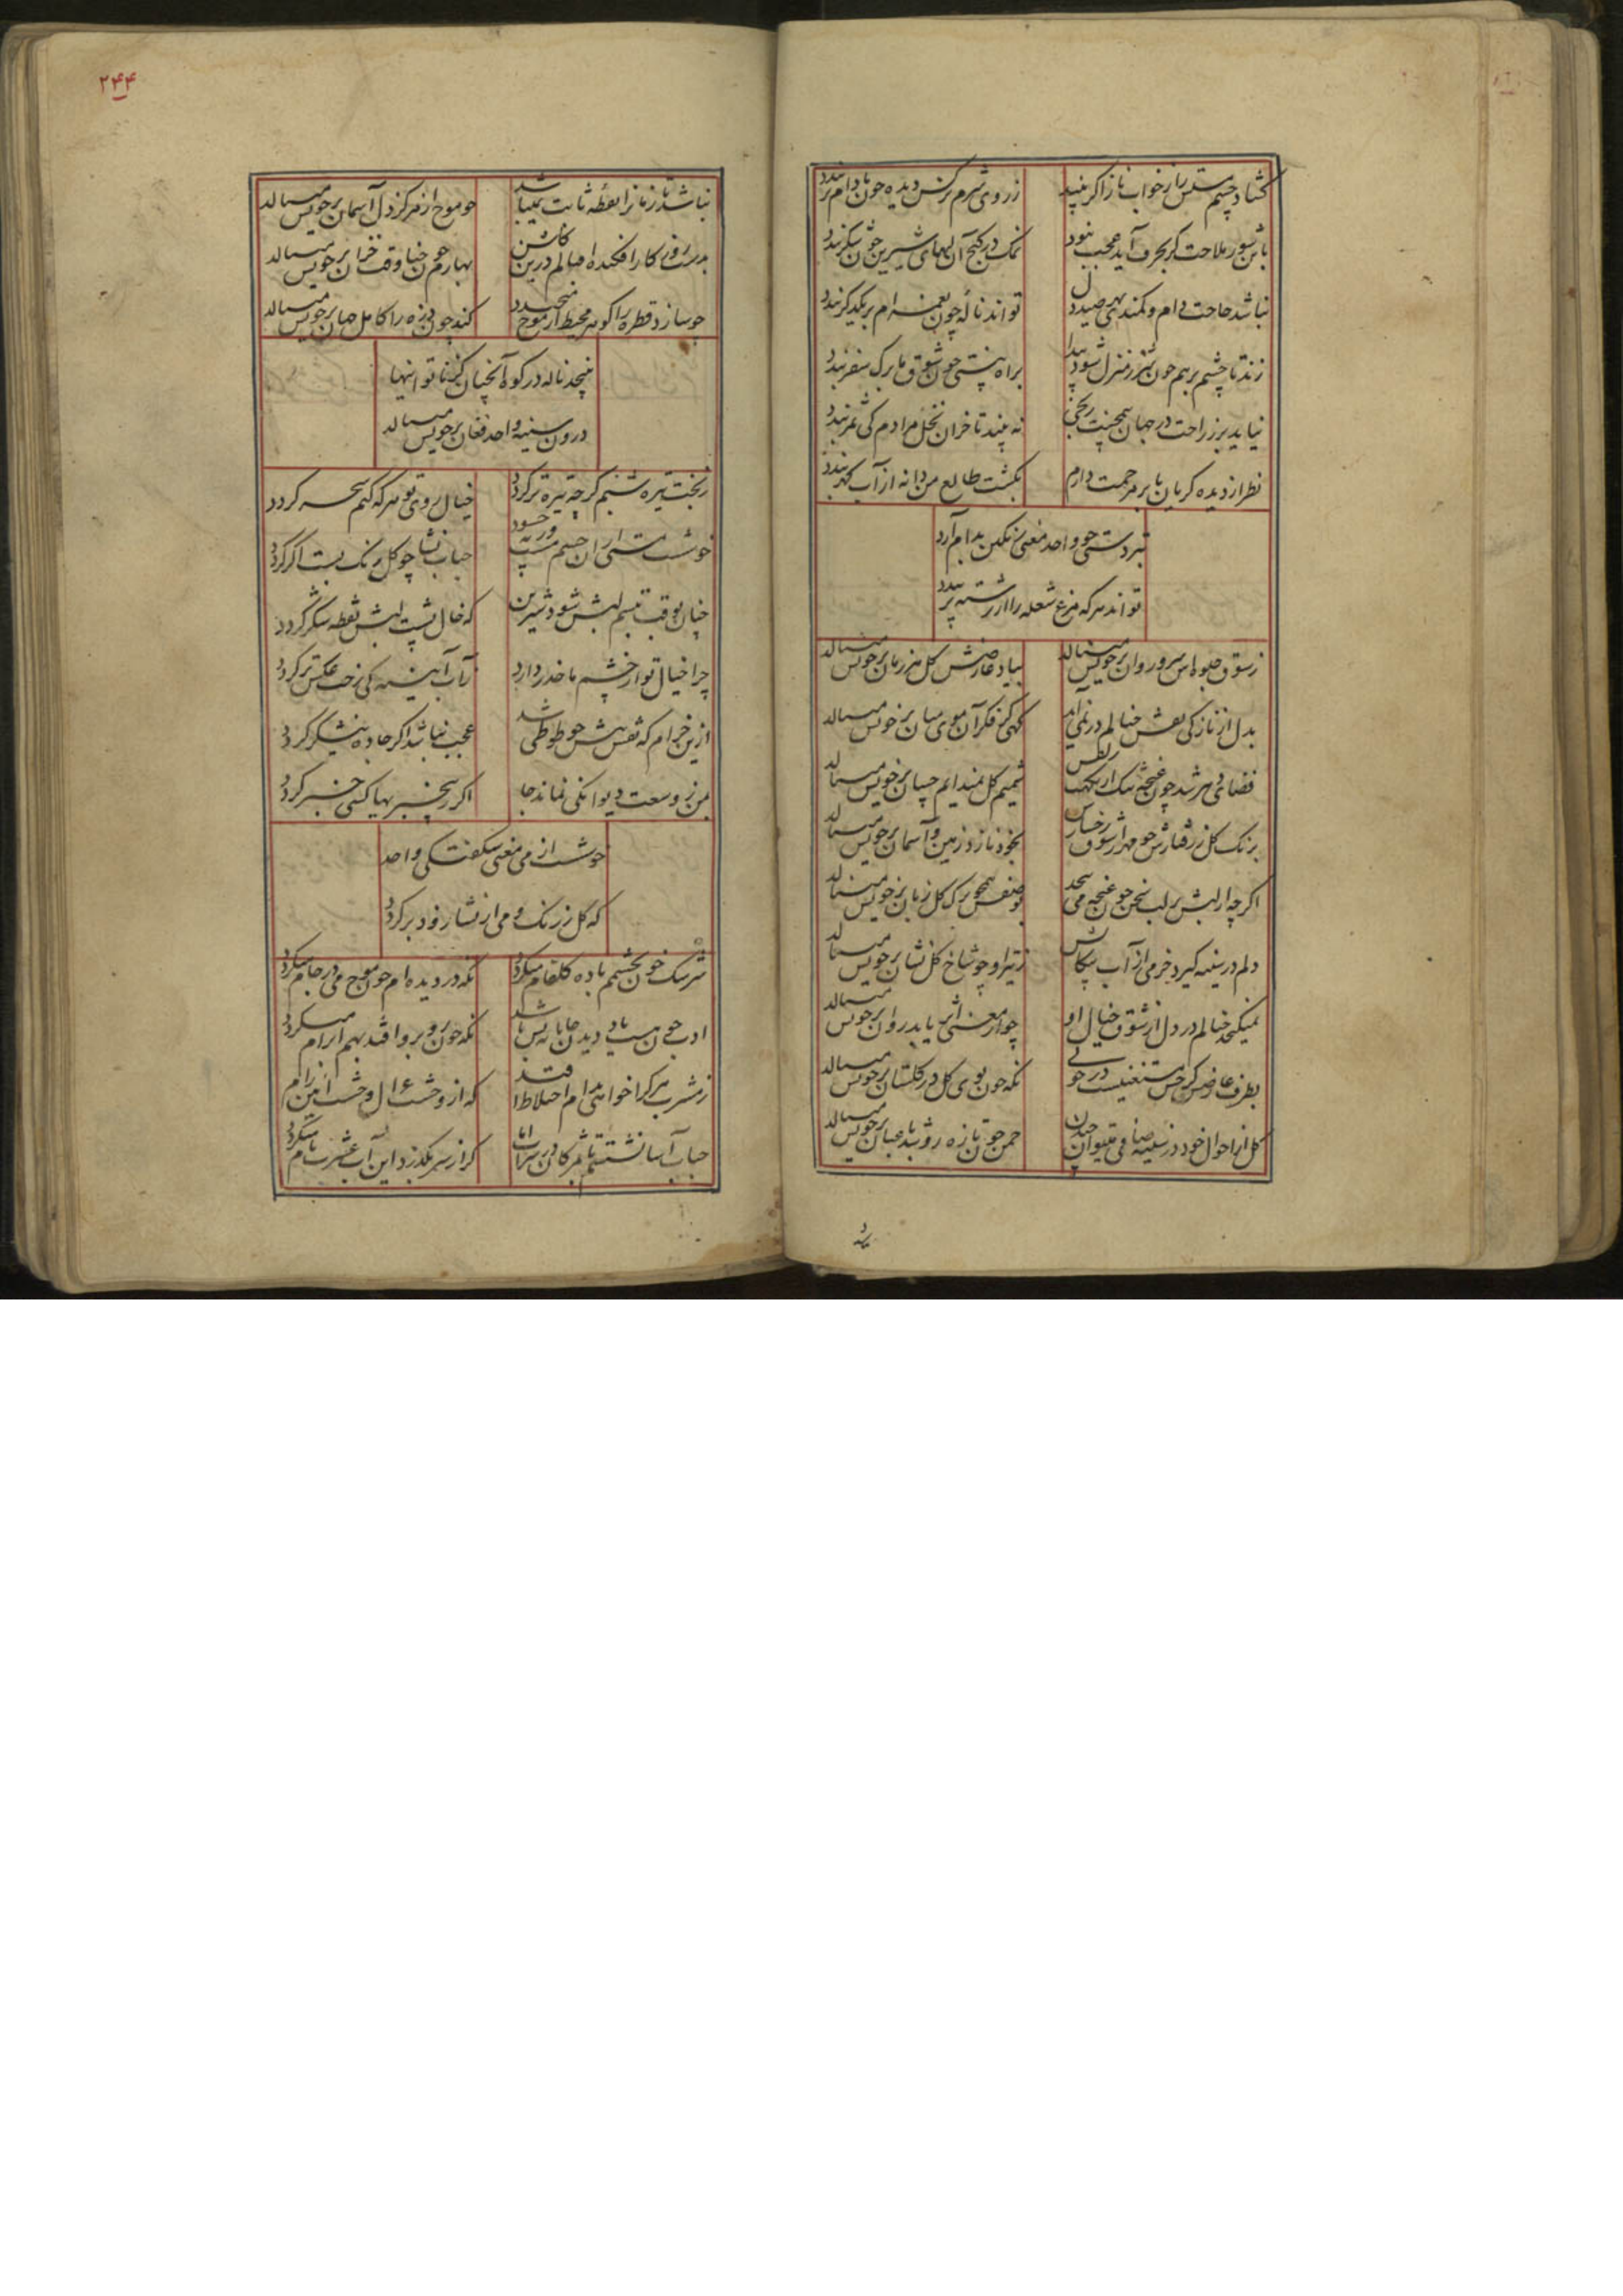 کشاد چشم مستش را ز خواب ناز اگر بیند
ز روی شرم نرکس دیده چون بادام بربندد
باین شور ملاحت کر بحرف آید عجب نبود
نمک در کنج آن لبهای شیرین چون شکر بندد
نباشد حاجت دام و کمندی بهر صید دل
تواند ناله چون نغمه‌ام بر یکدکر بندد
زند تا چشم برهم چون شرر منزل شود پیدا
براه نیستی چون شوق ما برک سفر بندد
نیاید بر ز راحت در جهان همچنین رنجی
نه بیند تا خزان نخل مرادم کی ثمر بندد
نظر از دیده کریان بابر مرحمت دارم
بکشت طالع من دانه از آب کهر بندد
بردستی چو واحد معنی رنکین بدام آرد
تواند هر که مرغ شعله را از رشته پر بندد
ز شوق جلوه‌اش سرو روان بر خویش میبالد
بیاد عارضش کل هر زمان بر خویش میبالد
بدل از نازکی نقش خیالم در نمی‌آید
کهی کز فکر آن موی میان بر خویش میبالد
فضای دهر شد چون غنچه تنک از نکهت
شمیم کل بندانم چسان بر خویش میبالد
برنک کل ز رفتارش چو مهر از شوق رخسارش
بخود نازد زمین و آسمان بر خویش میبالد
اکرچه از لبش بر لب سخن چون غنچه می‌پیچد
بوصفش همچو برک کل زبان بر خویش میبالد
دلم در سینه کیرد خرمی از آب پیکانش
ز تیر او چو شاخ کل نشان بر خویش میبالد
نمیکنجد خیالم در دل از شوق خیال او
چو از معنی اثر یابد روان بر خویش میبالد
بطرف عارض کز حسن مستغنیست در خوبی
نکه چون بوی کل در کلستان بر خویش میبالد
کل از احوال خود در سینه صافی میتوان چیدن
چمن چون تازه رو شد باغبان بر خویش میبالد
۲۴۴
نباشد تا ز نازانقطه ثابت نمیباشد
چو موج از مرکز دل آسمان بر خویش میبالد
بدست روز کار افکنده‌ام بالم درین کلشن
بهارم چون حنا وقت خزان بر خویش میبالد
چو سازد قطره را کوهر محیط از موج میخندد
کند چون ذره را کامل جهان بر خویش میبالد
نپیچد ناله در کوه آنچنان کز ناتوانیها
درون سینه واحد فغان بر خویش میبالد
ز بخت تیره شبنم کرچه تیره‌تر کردد
خیال روی تو هر که کنم سحر کردد
خوشست مستی از آن چشم ور نه
حباب نشأ چو کل رنک بست اکر کردد
چنان بوقت تبسم لبش شود شیرین
که خال پشت لبش نقطه شکر کردد
چرا خیال تو از چشم ما حذر دارد
ز آب آینه کی رخت عکس تر کردد
ازین خرام که نقش پیش چو طوطی شد
عجب نباشد اکر جاده نیشکر کردد
بمن ز وسعت دیوانکی نماند جا
اکر ز بیخبریها کسی خبر کردد
خوشست از می معنی شکفتکی واحد
که کل ز رنک و می از نشأ زود بر کردد
سرشک خون بچشمم باده کلفام میکردد
نکه در دیده‌ام چون موج می در جام میکردد
نکه چون روبرو افتد بهم آرام میکردد
ز مشرب هر کرا خواهی بدام اختلاط افتد
که از وحشت غزال وحشت آیین رام
حباب آسا نشستم تا بمژکان در سراب اما
کر از سر بکذرد این آب عشرت نام میکردد